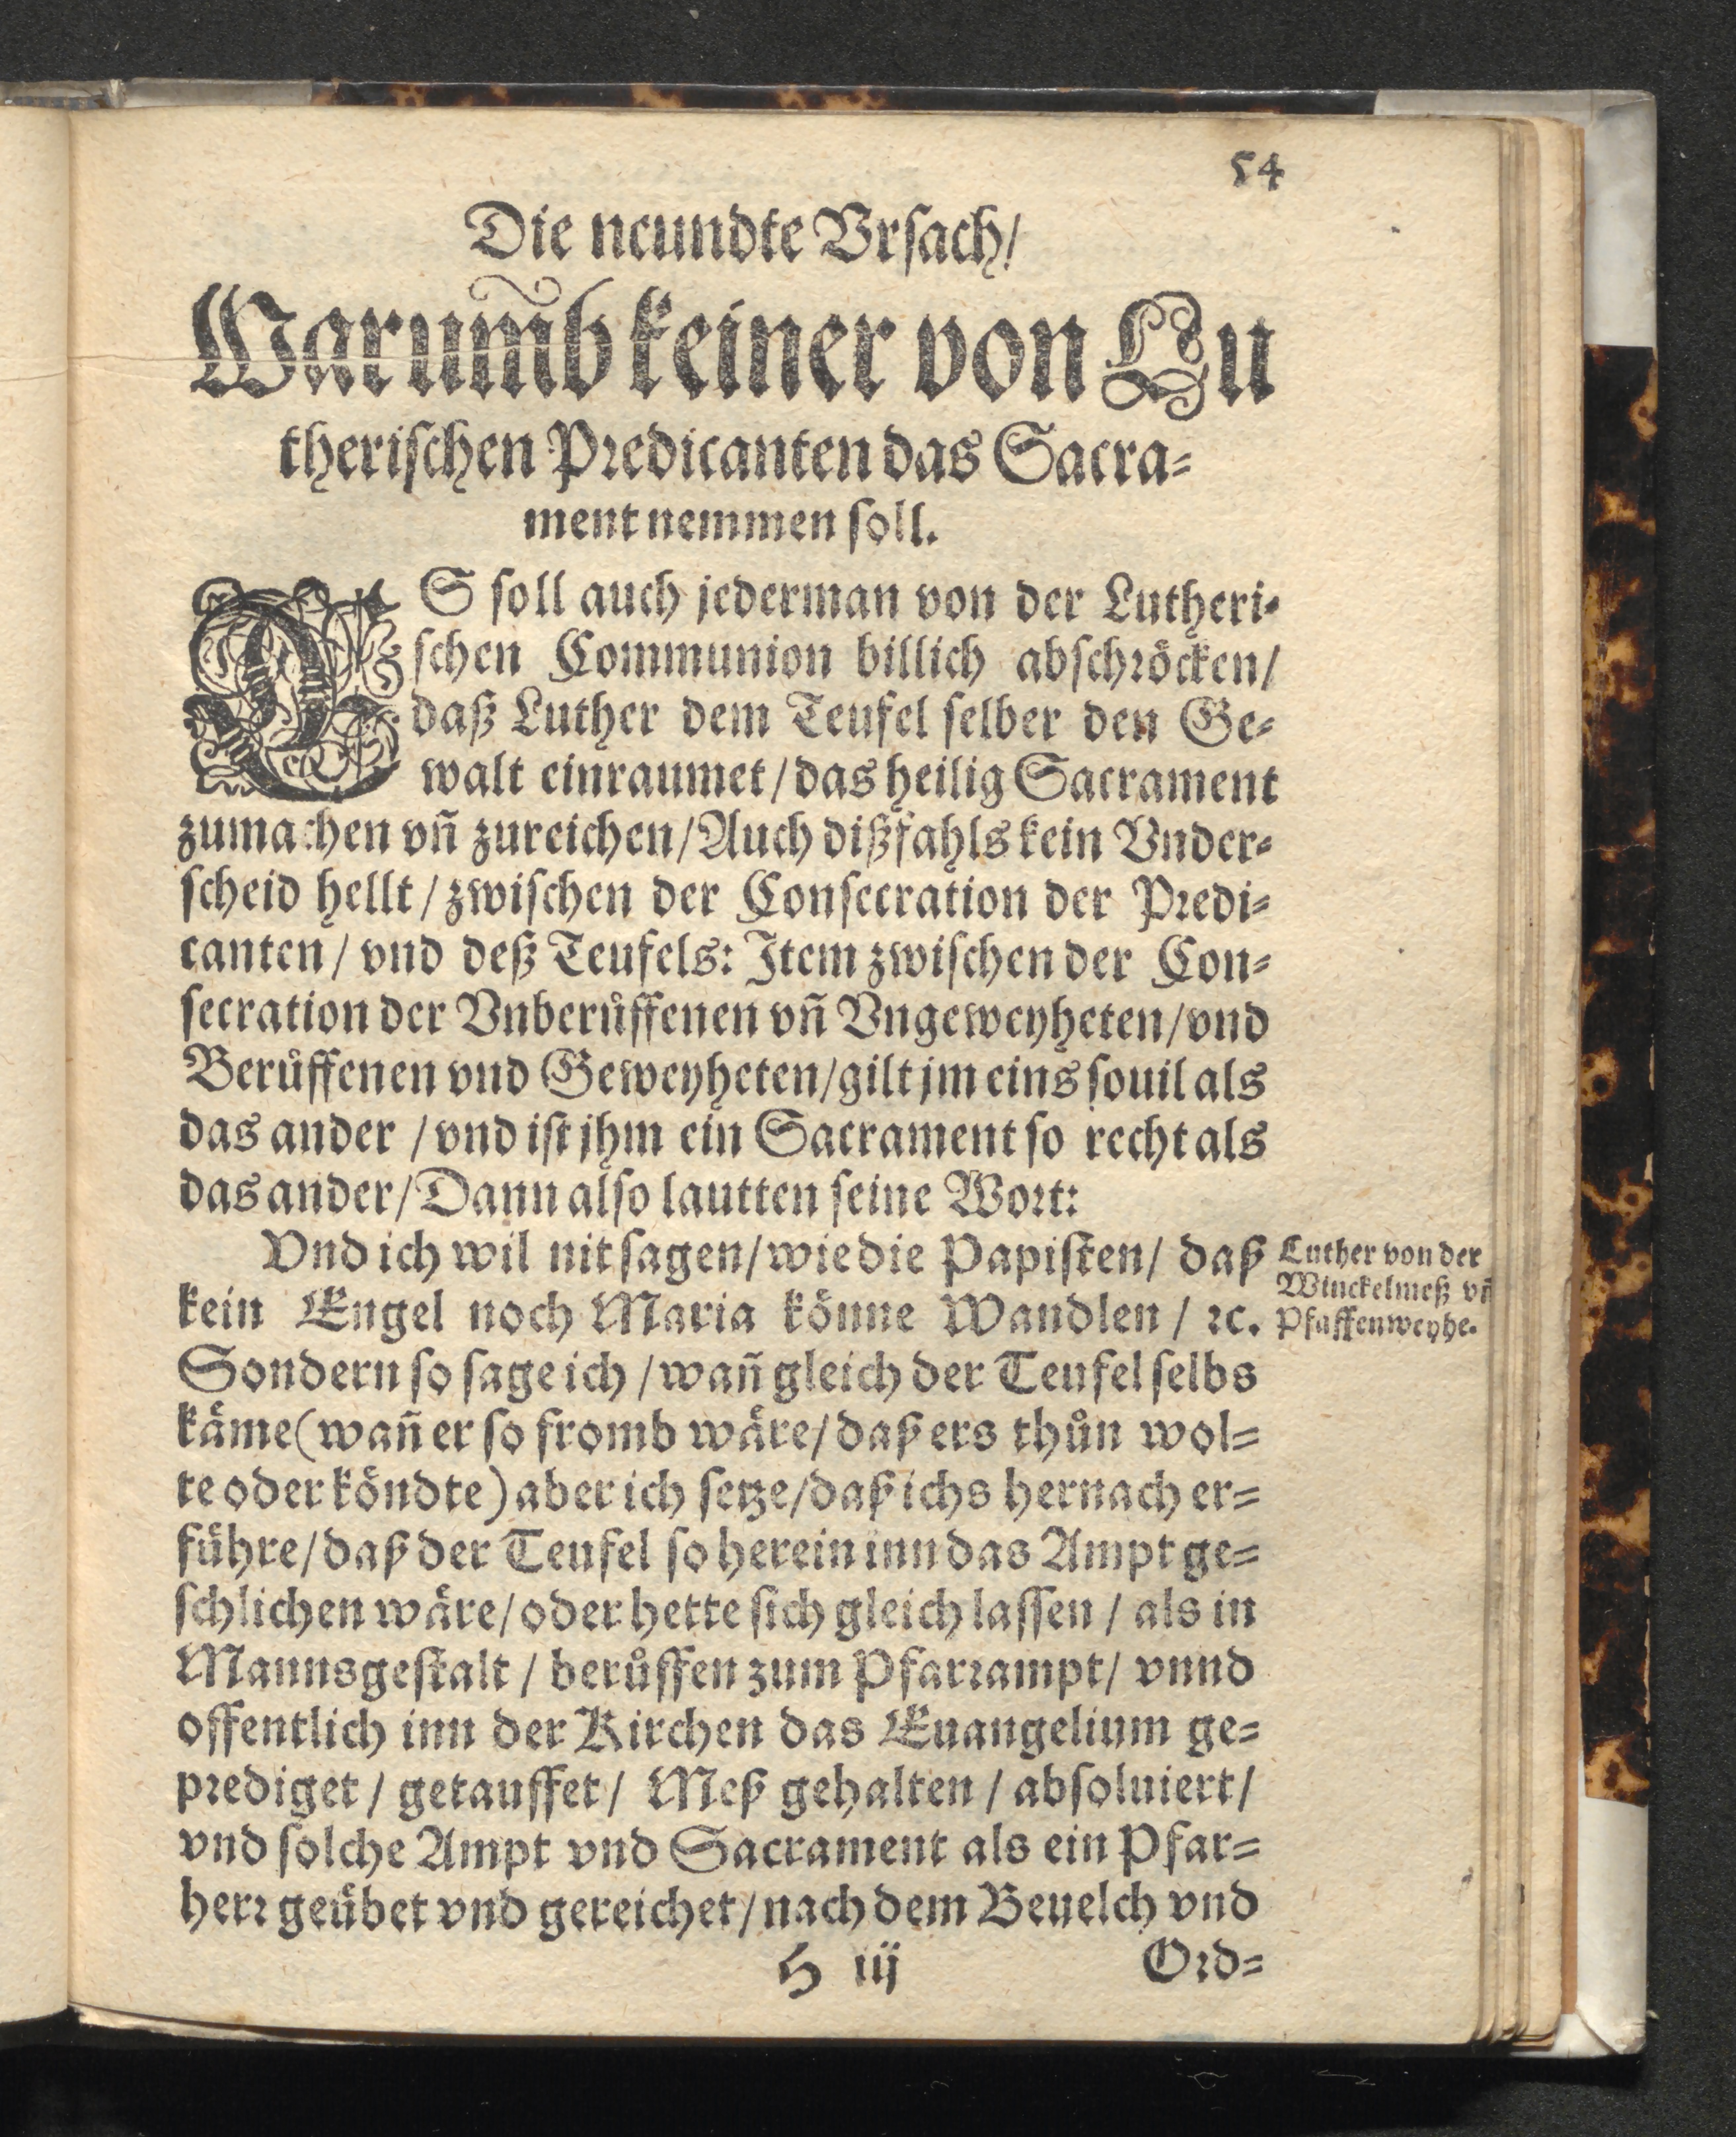 54
Die neundte Vrſach/
Warum̃b keiner von Lu
theriſchen Predicanten das Sacra⸗
ment nemmen ſoll.
ES ſoll auch jederman von der Lutheri⸗
ſchen Communion billich abſchröcken/
daß Luther dem Teufel ſelber den Ge⸗
walt einraumet/ das heilig Sacrament
zumachen vñ zureichen/ Auch dißfahls kein Vnder⸗
ſcheid hellt/ zwiſchen der Conſecration der Predi⸗
canten/ vnd deß Teufels: Item zwiſchen der Con⸗
ſecration der Vnberůffenen vñ Vngeweyheten/ vnd
Berůffenen vnd Geweyheten/ gilt jm eins ſouil als
das ander/ vnd iſt jhm ein Sacrament ſo recht als
das ander/ Dann alſo lautten ſeine Wort:
Vnd ich wil nit ſagen/ wie die Papiſten/ daß
kein Engel noch Maria könne Wandlen/ ꝛc.
Sondern ſo ſage ich/ wañ gleich der Teufel ſelbs
käme (wañ er ſo fromb wäre/ daß ers thůn wol⸗
te oder köndte) aber ich ſetze/ daß ichs hernach er⸗
führe/ daß der Teufel ſo herein inn das Ampt ge⸗
ſchlichen wäre/ oder hette ſich gleich laſſen/ als in
Mannsgeſtalt/ berůffen zum Pfarrampt/ vnnd
offentlich inn der Kirchen das Euangelium ge⸗
prediget/ getauffet/ Meß gehalten/ abſoluiert/
vnd ſolche Ampt vnd Sacrament als ein Pfar⸗
herr geübet vnd gereichet/ nach dem Beuelch vnd
Luther von der
Winckelmeß vñ
Pfaffenweyhe.
H iij
Ord⸗